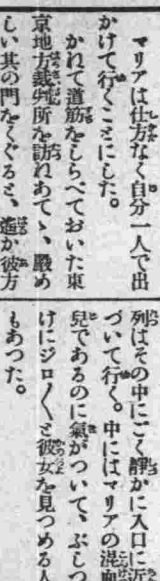 マリアは仕方なく自分一人で出
かけて行くことにした。
かねて道筋をしらべておいた東
京地方裁判所を訪れあてゝ、嚴め
しい其の門をくゞると、遙か彼方
列はその中にごく靜かに入口に近
づいて行く。中にはマリアの混血
兒であるのに氣がついて、ぶしつ
けにジロ〳〵と彼女を見つめる人
もあつた。